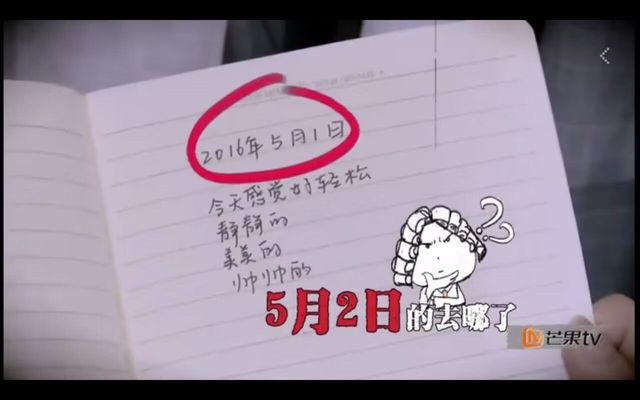 2016年5月1日
今天感觉好轻松
静静的
美美的
帅帅的
??
5月2日的去哪了
芒果tv